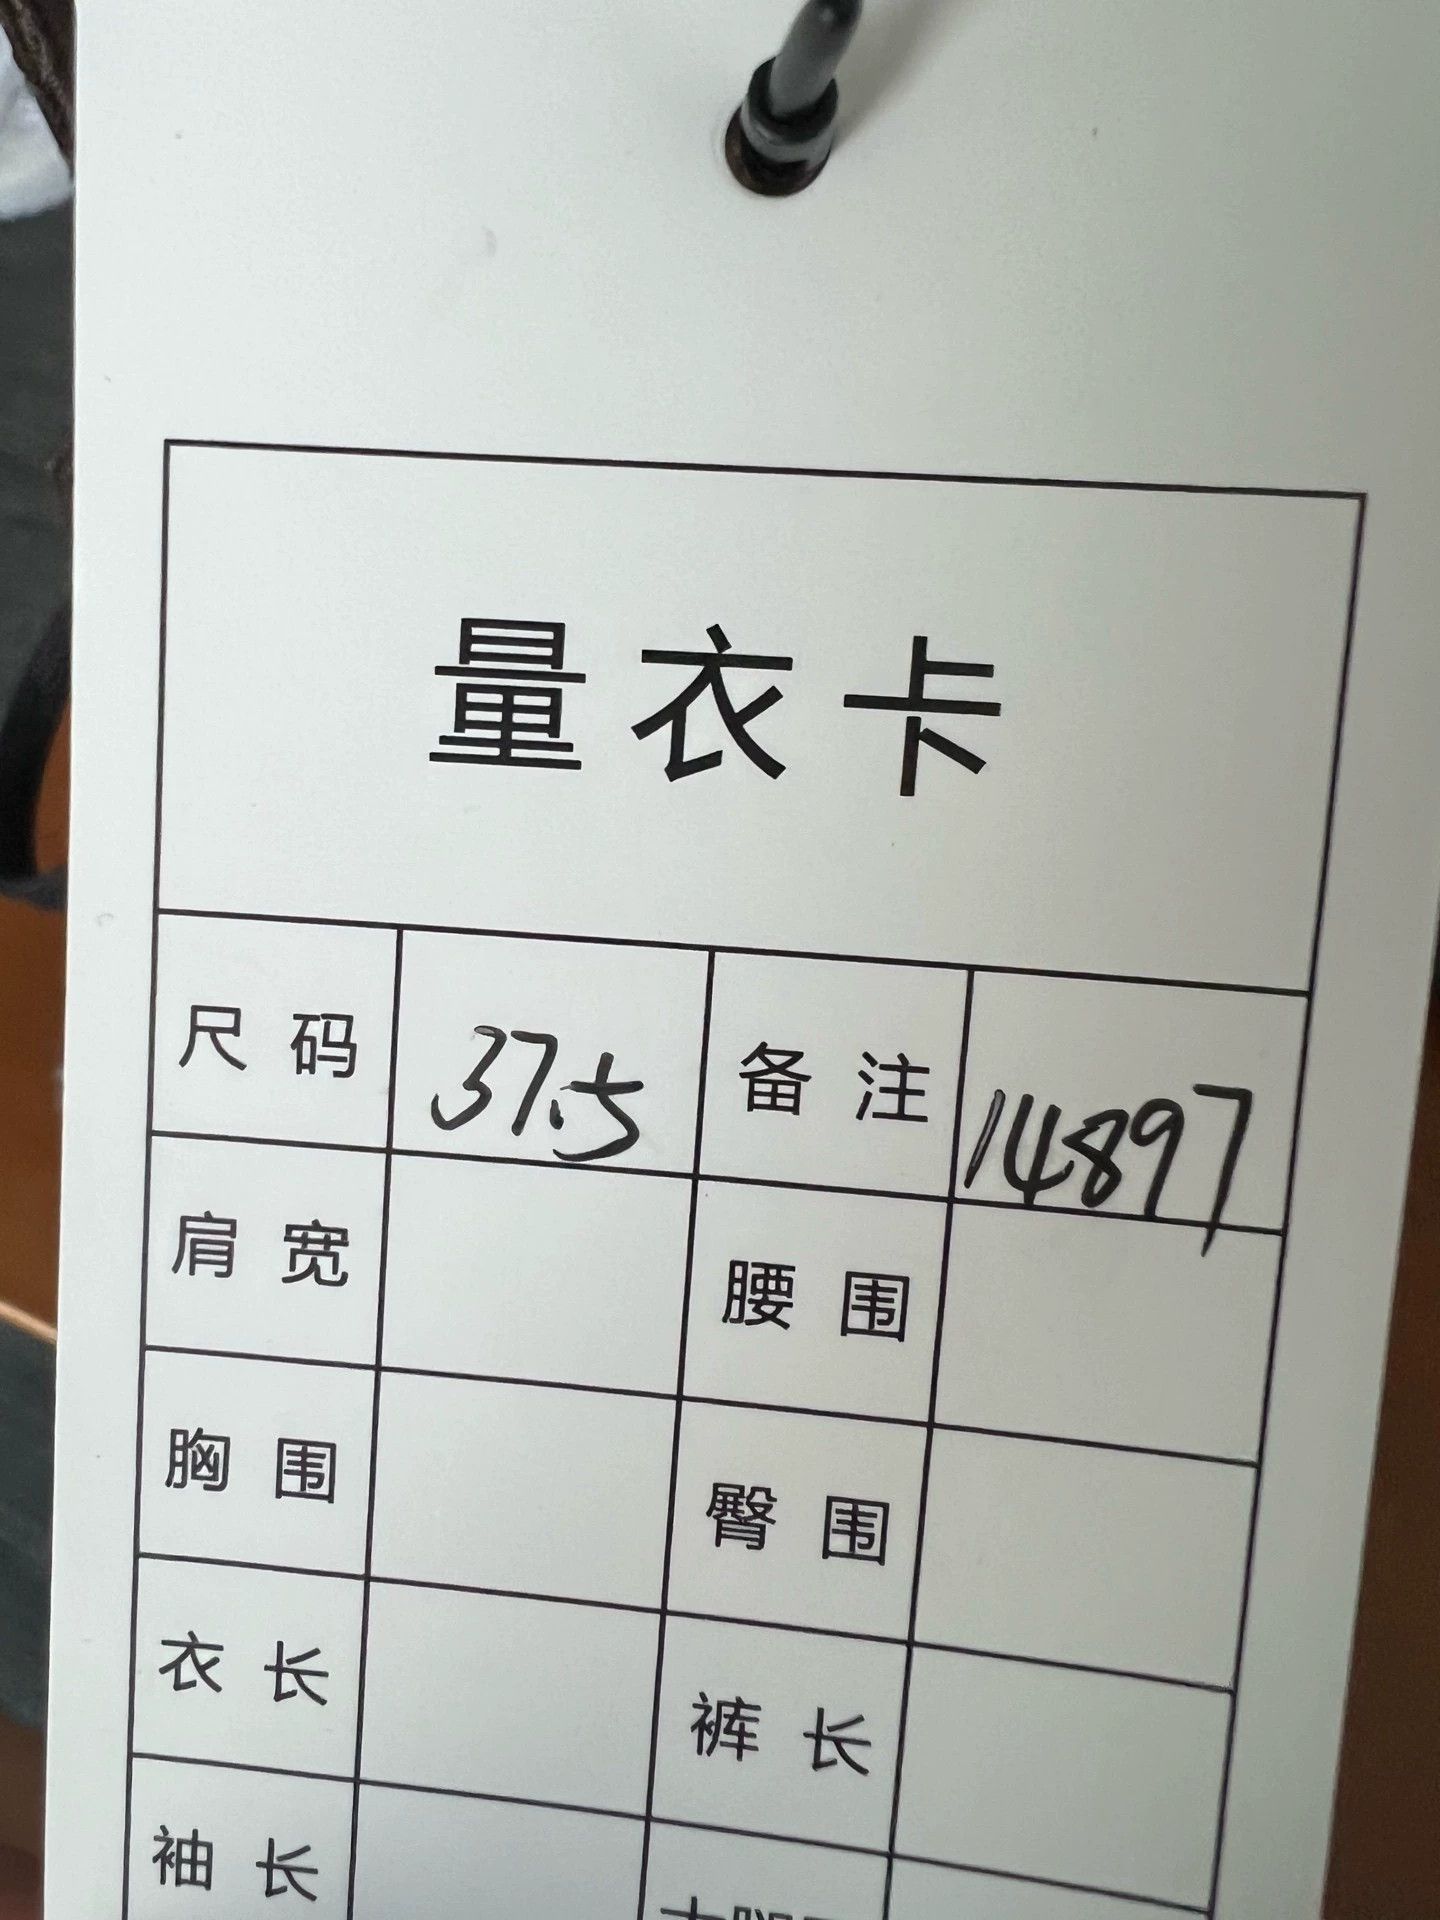 量衣卡
尺码 37.5 备注 14897
肩宽 腰围
胸围 臀围
衣长 裤长
袖长